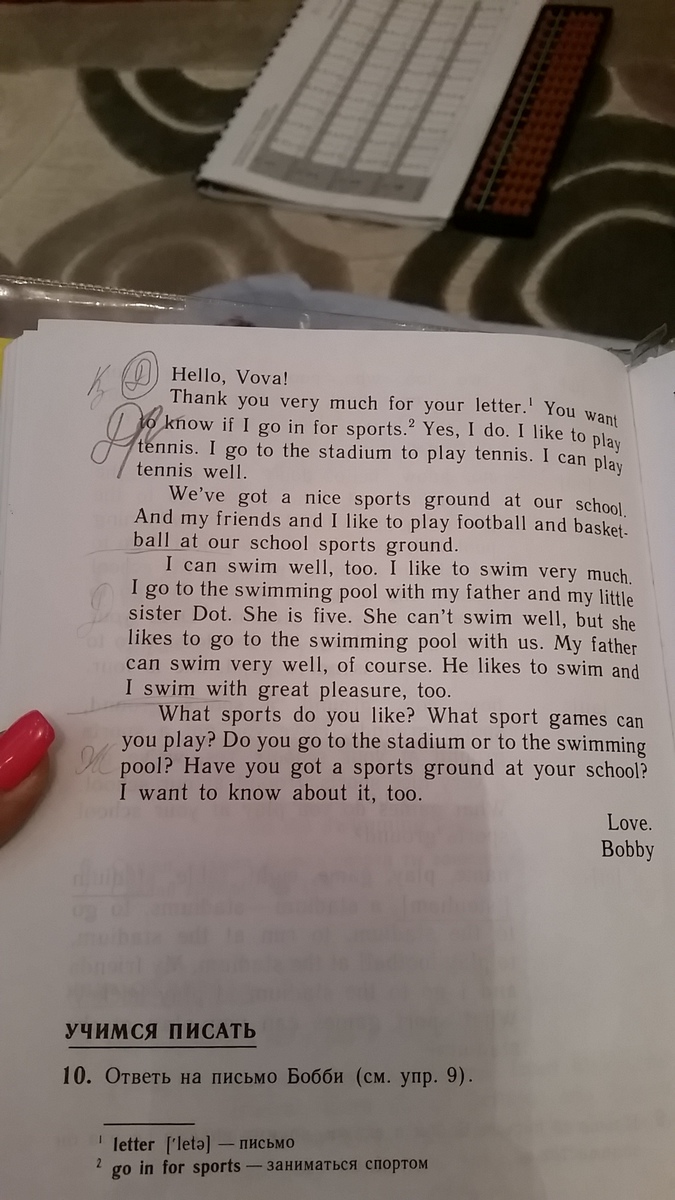 Hello, Vova!
Thank you very much for your letter.¹ You want
to know if I go in for sports.² Yes, I do. I like to play
tennis. I go to the stadium to play tennis. I can play
tennis well.
We've got a nice sports ground at our school.
And my friends and I like to play football and basket-
ball at our school sports ground.
I can swim well, too. I like to swim very much.
I go to the swimming pool with my father and my little
sister Dot. She is five. She can't swim well, but she
likes to go to the swimming pool with us. My father
can swim very well, of course. He likes to swim and
I swim with great pleasure, too.
What sports do you like? What sport games can
you play? Do you go to the stadium or to the swimming
pool? Have you got a sports ground at your school?
I want to know about it, too.
Love.
Bobby
УЧИМСЯ ПИСАТЬ
10. Ответь на письмо Бобби (см. упр. 9).
¹ letter ['letə] — письмо
² go in for sports — заниматься спортом